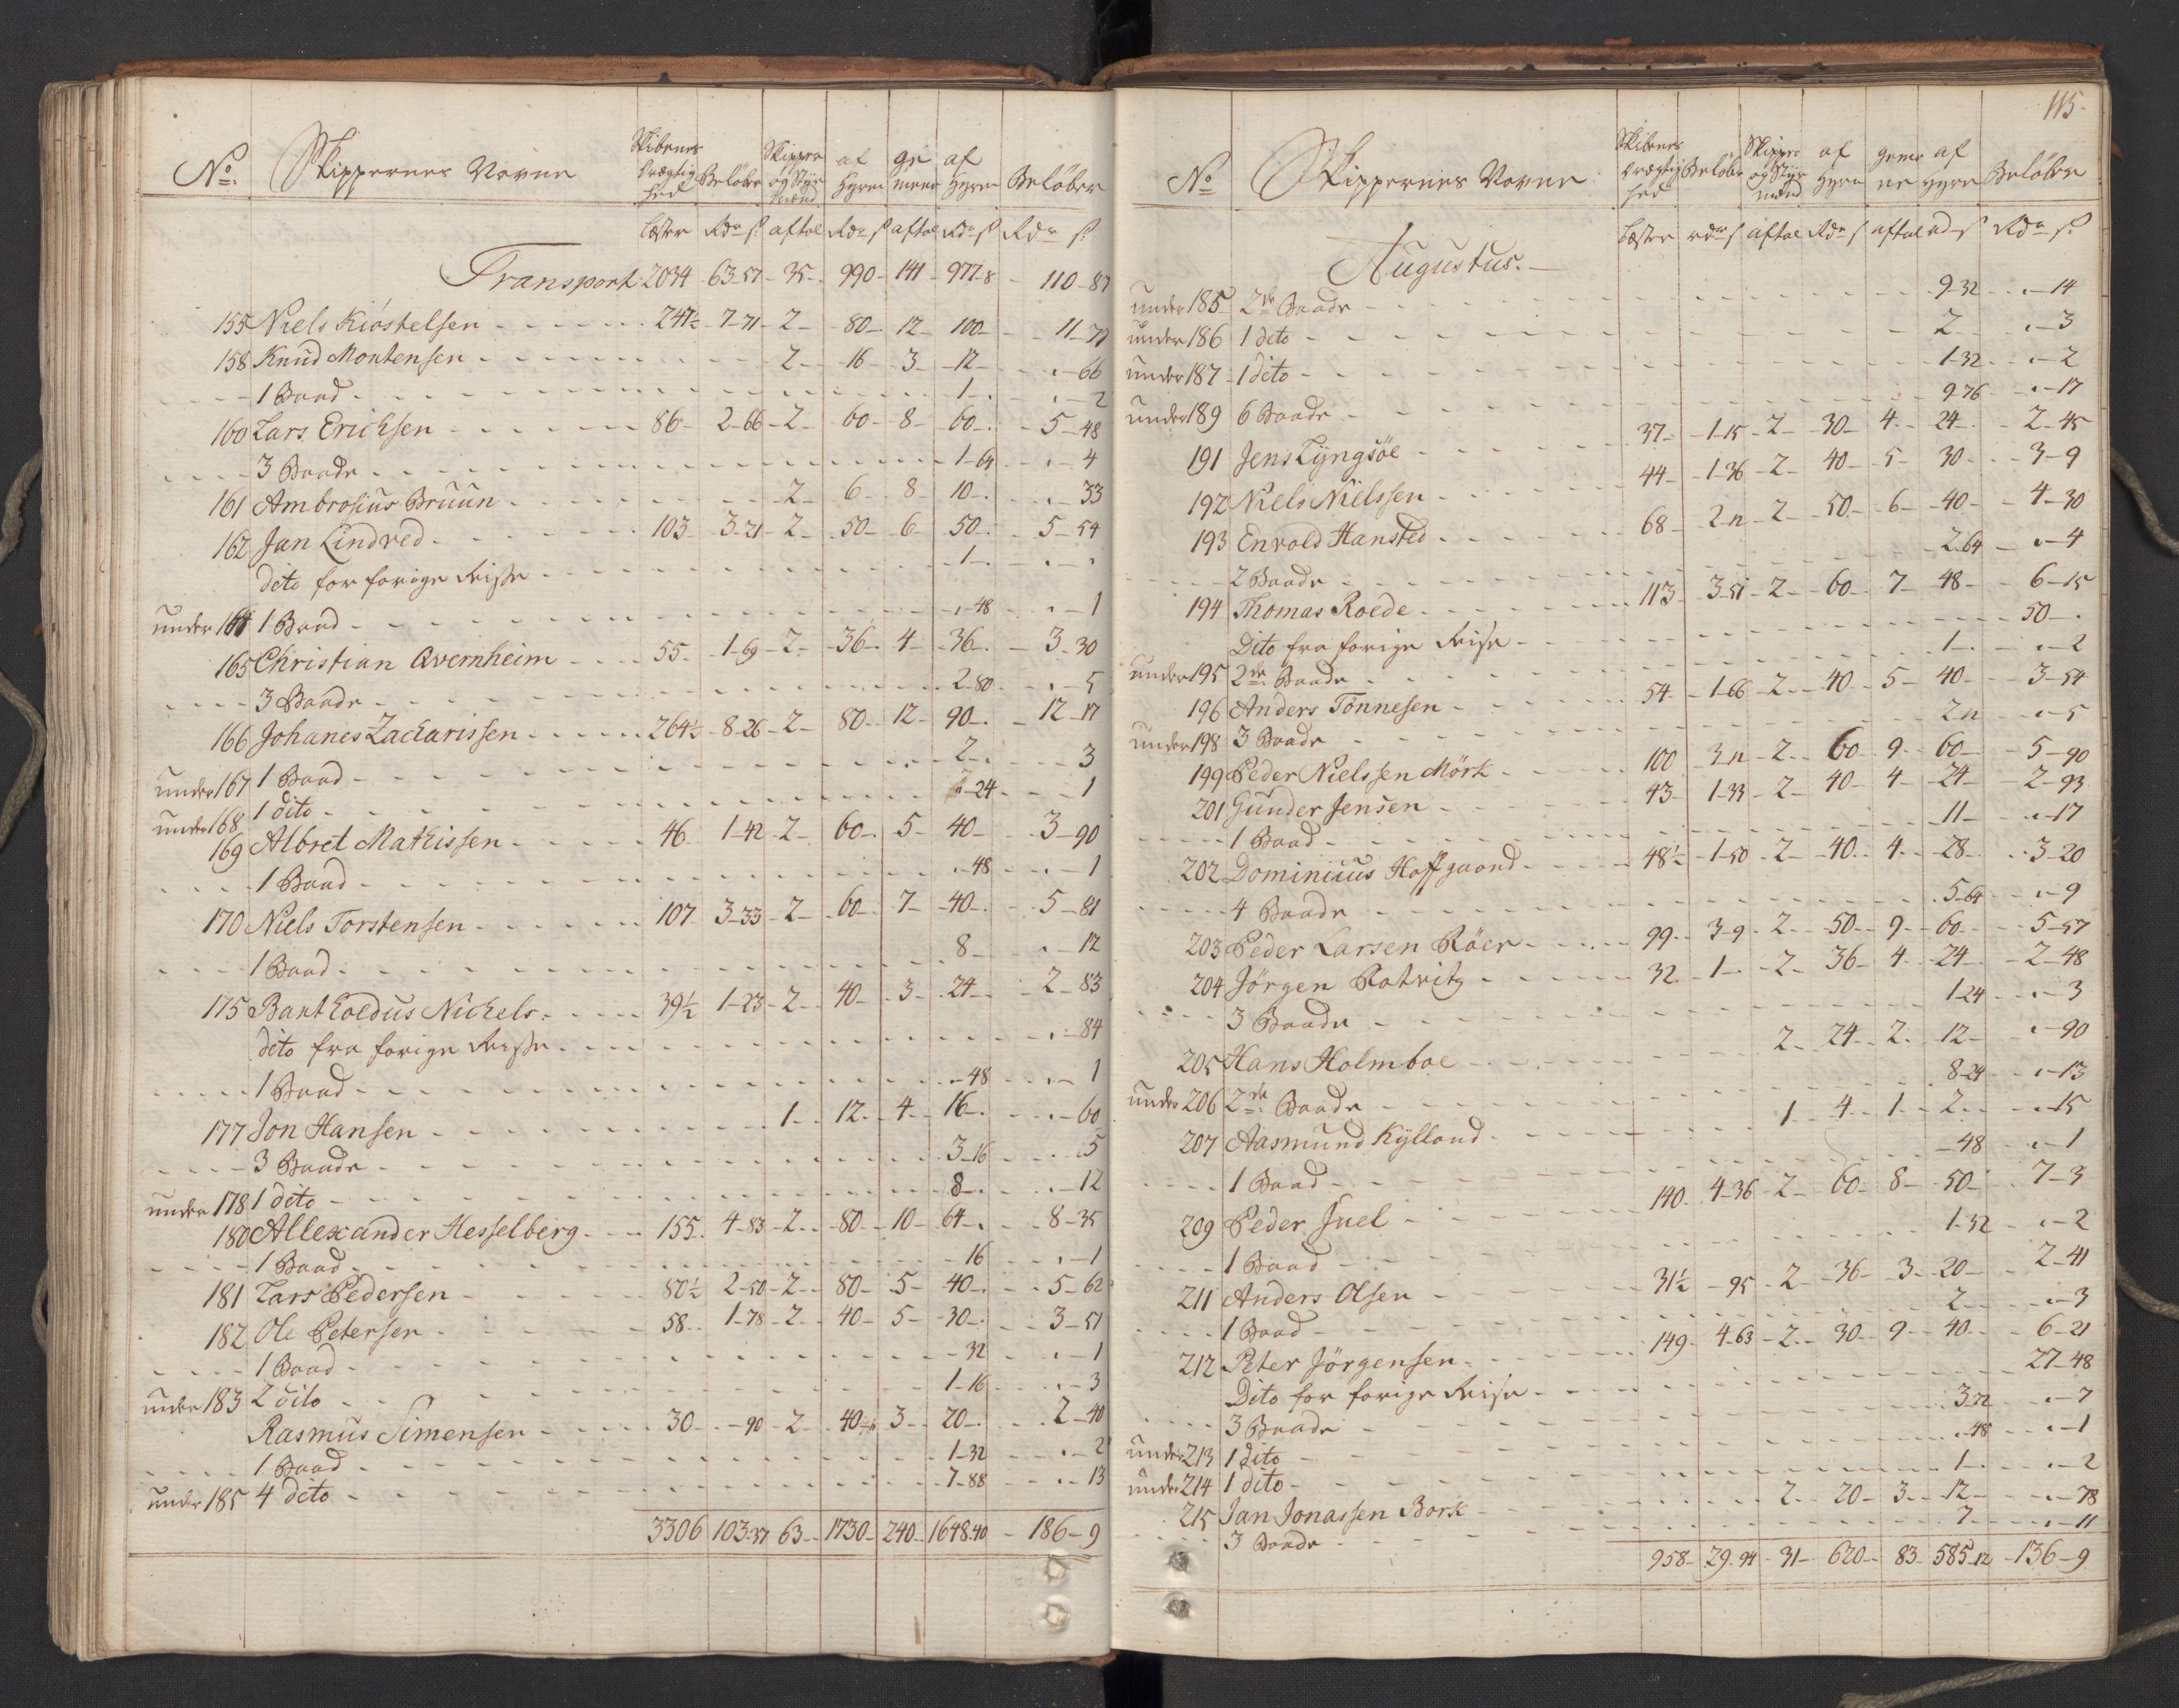 No. Skippernes Navne Skibenes Drægtighed Beløber Skipper og Styrmænd af Hyren gemene af Hyren Beløber
Læster Rdr s. aftal Rdr s aftal Rdr s Rdr s.
Transport 2034 63-57 35 990 141 977-8 110-87
155 Niels Kiøstelsen 247½ 7-71 2 80 12 100 11-77
158 Knud Mortensen 2 16 3 12 -66
1 Baad 1 -2
160 Lars Erichsen 86 2-66 2 60 8 60 5-48
3 Baade 1-64 -4
161 Ambrosius Bruun 2 6 8 10 -33
162 Jan Lindved 103 3-21 2 50 6 50 5-54
dito for forige Reisse 1
under 164 1 Baad -48 -1
165 Christian Qvernheim 55 1-69 2 36 4 36 3-30
3 Baade 2-80 -5
166 Johanes Zacharissen 264½ 8-26 2 80 12 90 12-17
under 167 1 Baad 2 3
under 168 1 dito -24 1
169 Albret Mathissen 46 1-42 2 60 5 40 3-90
1 Baad -48 -1
170 Niels Torstensen 107 3-33 2 60 7 40 5-81
1 Baad 8 -12
175 Bartholdus Nichels 39½ 1-23 2 40 3 24 2-83
dito fra forige Reisse -84
1 Baad -48 -1
177 Jon Hansen 1 12 4 16 -60
3 Baade 3-16 5
under 178 1 dito 8 -12
180 Allexander Hesselberg 155 4-83 2 80 10 64 8-35
1 Baad 16 -1
181 Lars Pedersen 80½ 2-50 2 80 5 40 5-62
182 Ole Petersen 58 1-78 2 40 5 30 3-51
1 Baad -32 -1
under 183 2 dito 1-16 -3
Rasmus Simensen 30 -90 2 40 3 20 2-40
1 Baad 1-32 -2
under 185 4 dito 7-88 -13
3306 103-37 63 1730 240 1648-40 186-9
115
No Skippernes Navne Skibenes Drægtighed Beløber Skipper og Styrmænd af Hyre gemene af Hyre Beløber
Læster rdr s aftal Rdr s aftal rd s Rdr s.
Augustus.
under 185 2de Baade 9-32 -14
under 186 1 dito 2 -3
under 187 1 dito 1-32 -2
under 189 6 Baade 9-76 -17
191 Jens Lyngsöe 37 1-15 2 30 4 24 2-45
192 Niels Nielssen 44 1-36 2 40 5 30 3-9
193 Envold Hansted 68 2-12 2 50 6 40 4-30
2 Baade 2-64 -4
194 Thomas Roede 113 3-51 2 60 7 48 6-15
Dito fra forige Reise 50
under 195 2de Baade 1 -2
196 Anders Tönnesen 54 1-66 2 40 5 40 3-54
under 198 3 Baade 2-12 -5
199 Peder Nielssen Mörk 100 3-12 2 60 9 60 5-90
201 Gunder Jensen 43 1-33 2 40 4 24 2-93
1 Baad 11 -17
202 Dominicus Hoffgaard 48½ 1-50 2 40 4 28 3-20
4 Baade 5-64 -9
203 Peder Larsen Röer 99 3-9 2 50 9 60 5-57
204 Jörgen Rotvitz 32 1 2 36 4 24 2-48
3 Baade 1-24 -3
205 Hans Holmboe 2 24 2 12 -90
under 206 2de Baade 8-24 -13
207 Aasmund Kylland 1 4 1 2 -15
1 Baad -48 -1
209 Peder Juel 140 4-36 2 60 8 50 7-3
1 Baad 1-32 -2
211 Anders Olsen 31½ -95 2 36 3 20 2-41
1 Baad 2 -3
212 Peter Jörgensen 149 4-63 2 30 9 40 6-21
Dito for forige Reise 27-48
3 Baade 3-72 -7
under 213 1 dito -48 -1
under 214 1 dito 1 -2
215 Jan Jonassen Bork 2 20 3 12 -78
3 Baade 7 -11
958 29-94 31 620 83 585-12 136-9